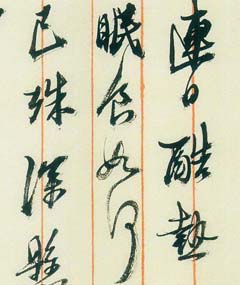 連日酷熱
眠食如何
已殊深縣